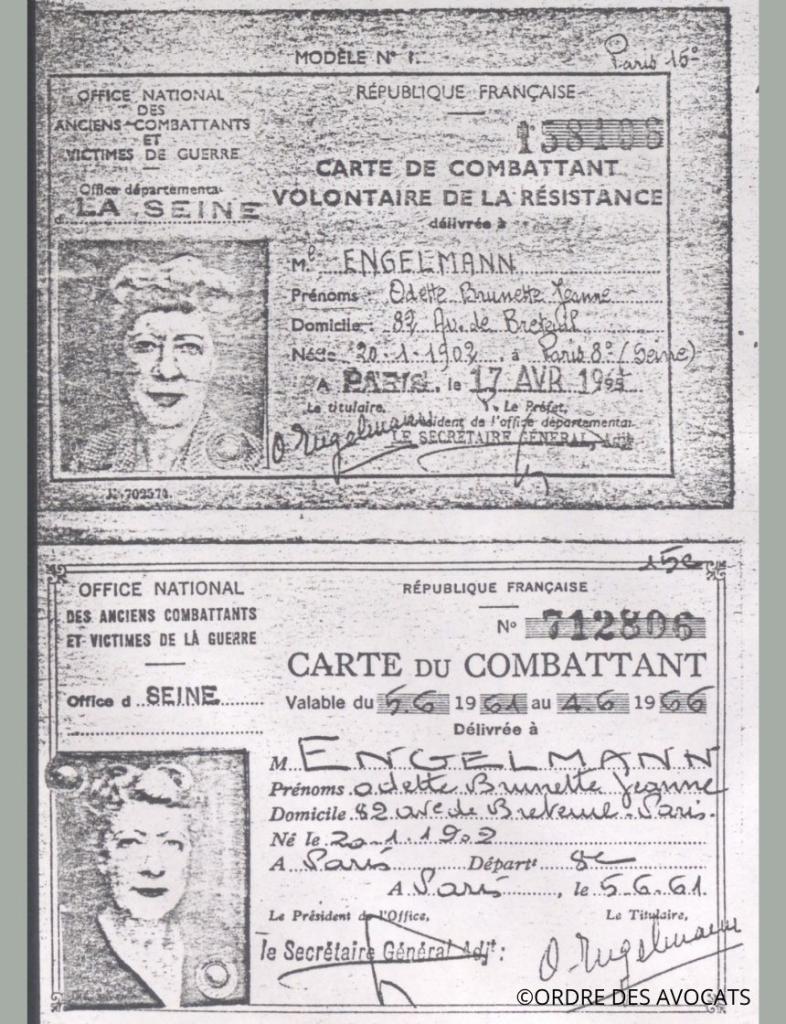 MODÈLE N° 1.
Paris 15e
OFFICE NATIONAL
DES
ANCIENS COMBATTANTS
ET
VICTIMES DE GUERRE
Office départemental
d LA SEINE
RÉPUBLIQUE FRANÇAISE
158106
CARTE DE COMBATTANT
VOLONTAIRE DE LA RÉSISTANCE
délivrée à
M ENGELMANN
Prénoms : Odette Brunette Jeanne
Domicile : 82 Av. de Breteuil
Née le 20-1-1902 à Paris 8e (Seine)
A PARIS, le 17 AVR
Le titulaire, Le Préfet,
Président de l'office départemental
O. Engelmann LE SECRÉTAIRE GÉNÉRAL, Adjt
15e
OFFICE NATIONAL
DES ANCIENS COMBATTANTS
ET VICTIMES DE LA GUERRE
Office d SEINE
RÉPUBLIQUE FRANÇAISE
N° 712806
CARTE DU COMBATTANT
Valable du 5.6 1961 au 4.6 1966
Délivrée à
M ENGELMANN
Prénoms Odette Brunette Jeanne
Domicile 82 ave de Breteuil. Paris.
Né le 20.1.1902
A Paris Départt 8e
A Paris, le 5.6.61.
Le Président de l'Office, Le Titulaire,
le Secrétaire Général Adjt : O. Engelmann
©ORDRE DES AVOCATS